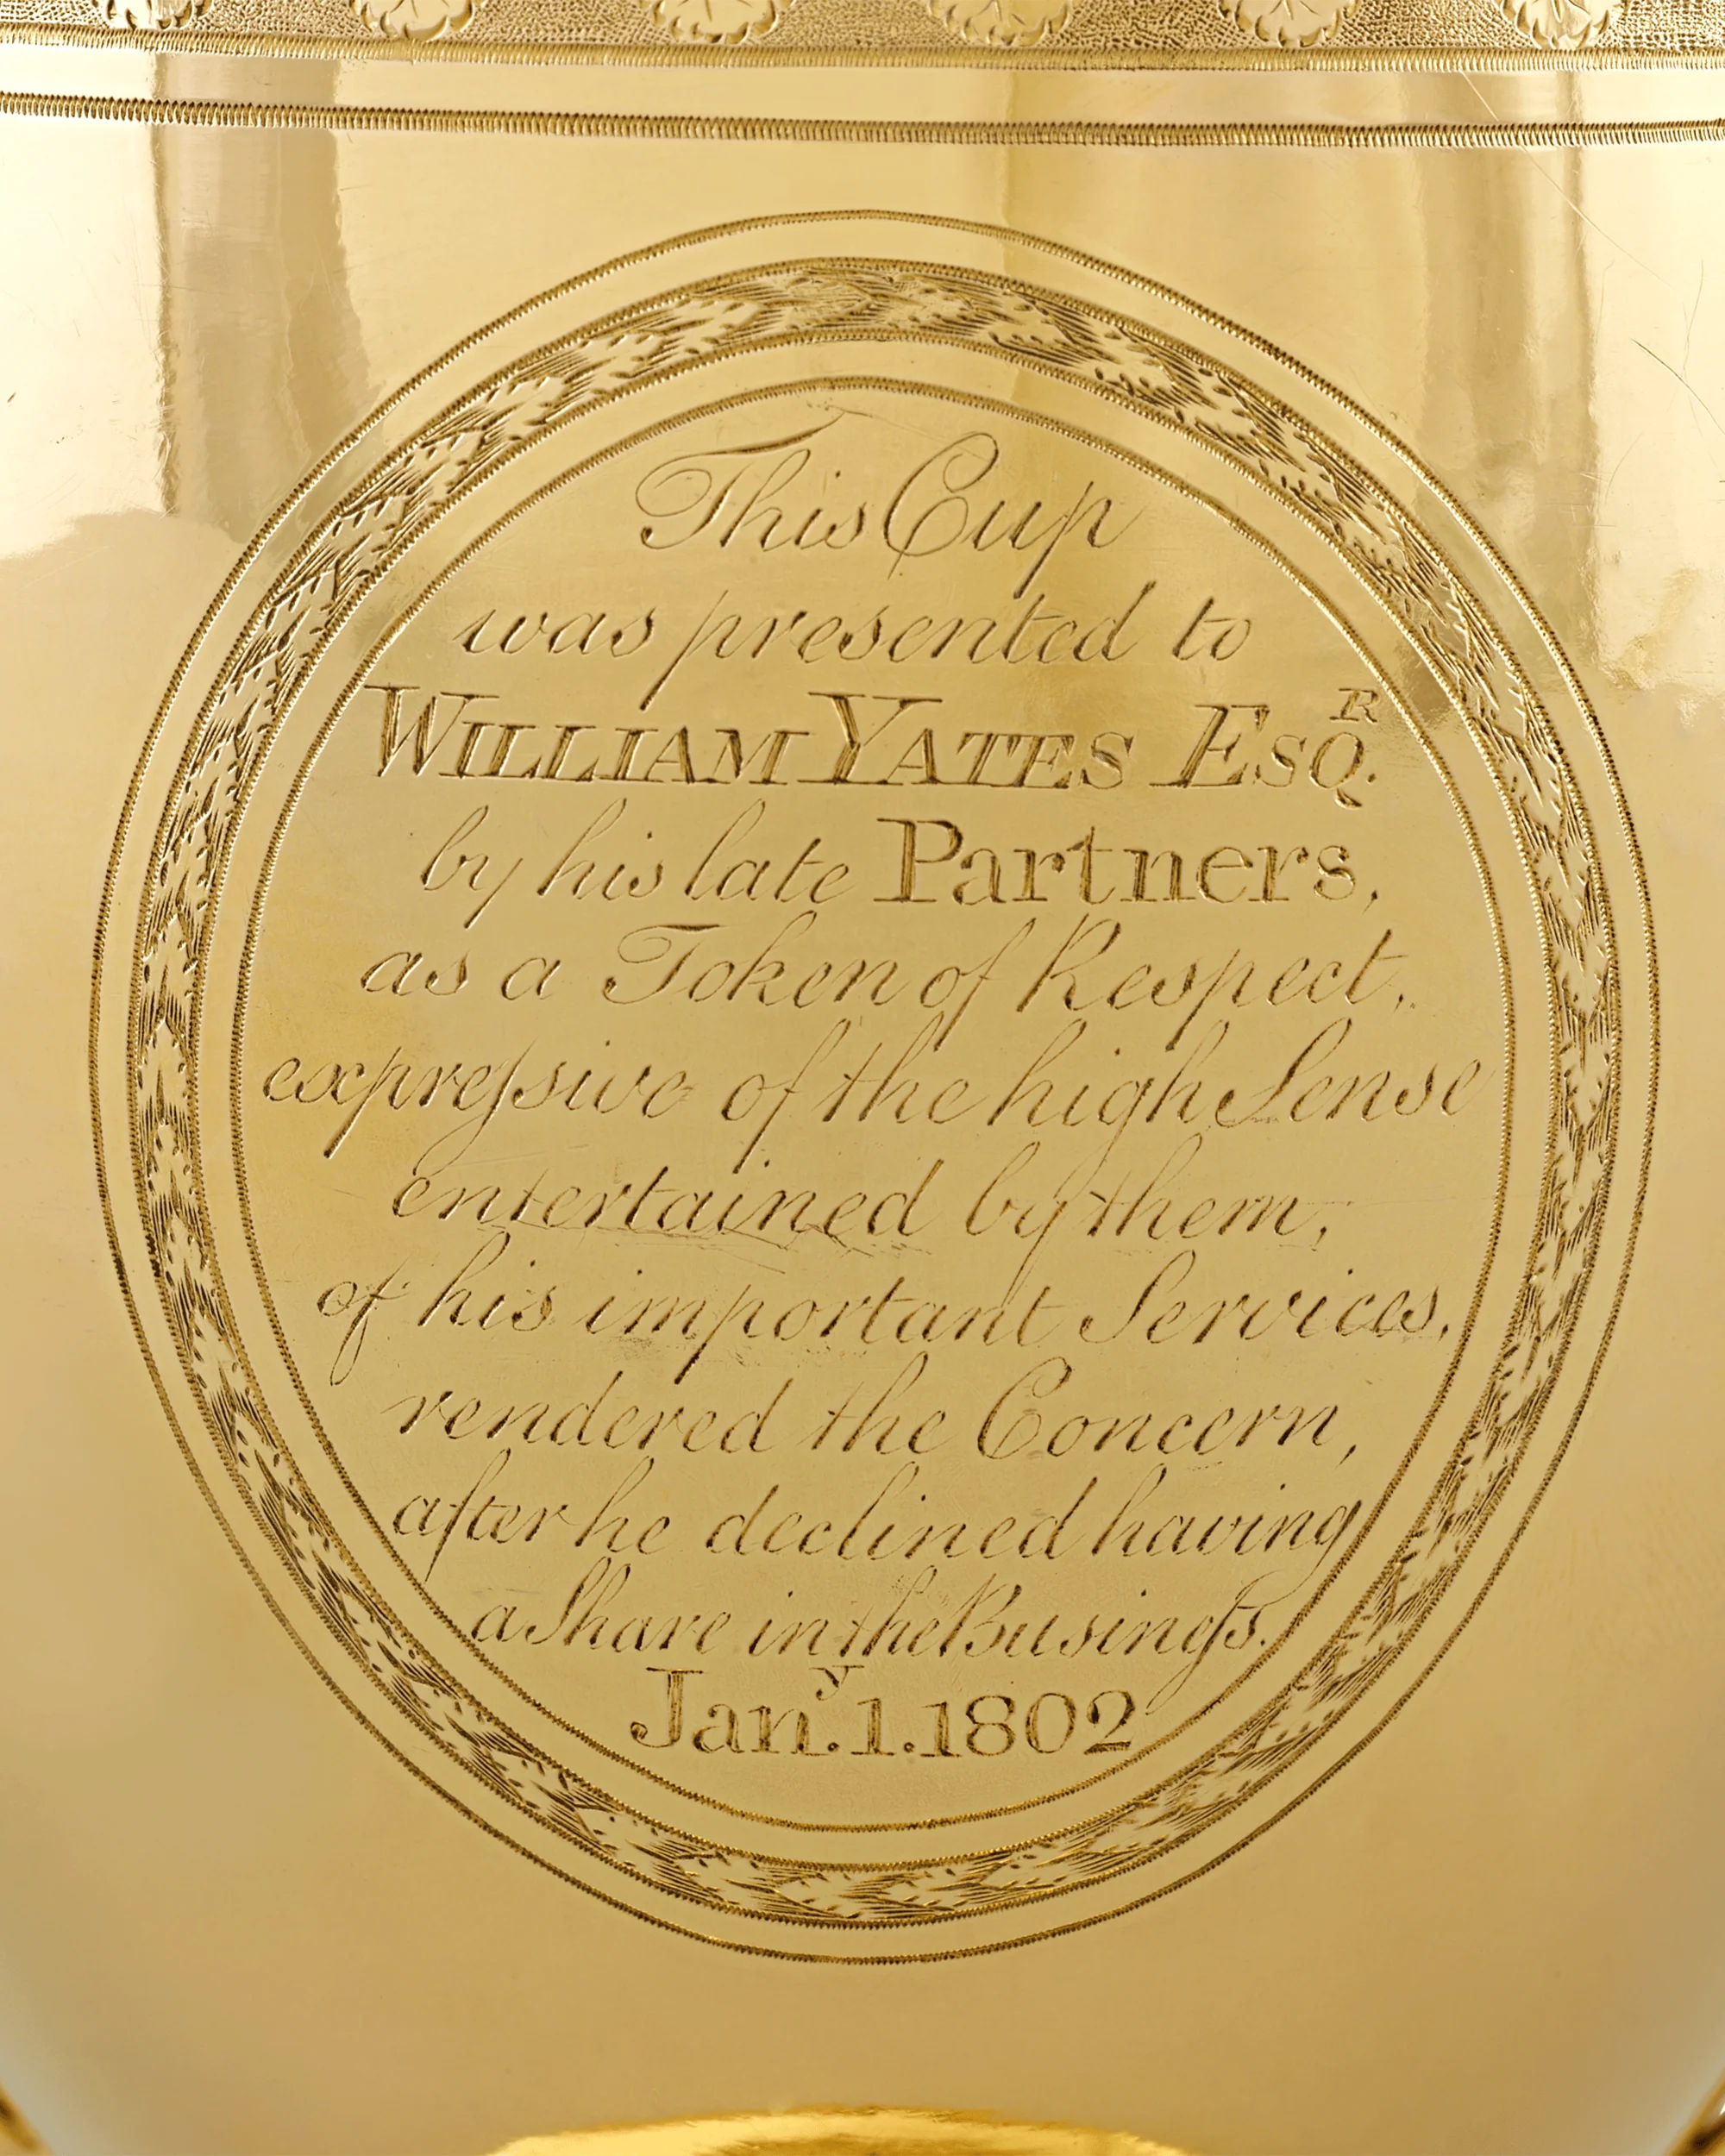 This Cup
was presented to
WILLIAM YATES ESQ.ᴿ
by his late Partners,
as a Token of Respect,
expreſsive of the high Sense
entertained by them,
of his important Services,
rendered the Concern,
after he declined having
a Share in the Busineſs.
Jan.ʸ 1. 1802